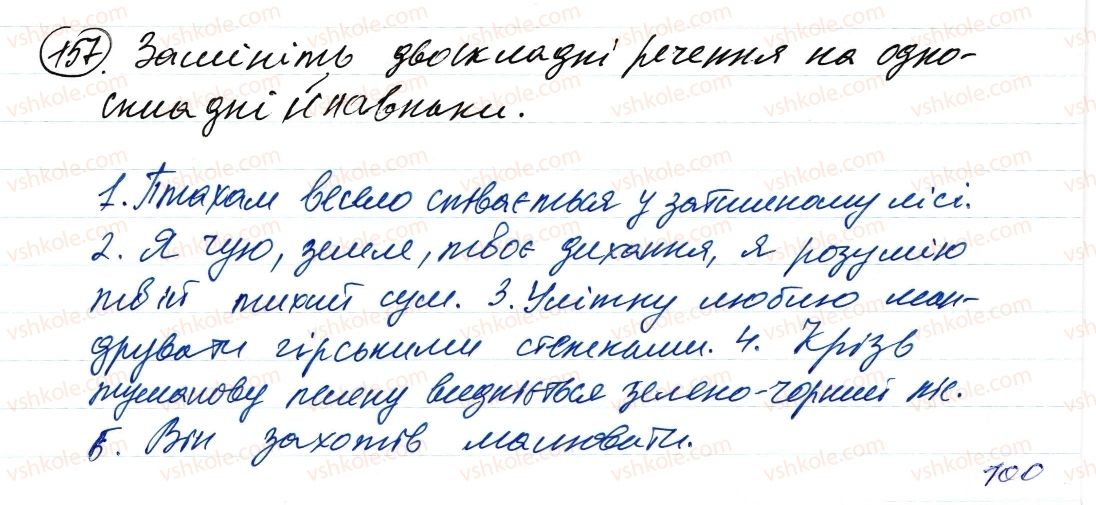 157. Замініть двоскладні речення на одно-
складні й навпаки.
1. Птахам весело співається у затишному лісі.
2. Я чую, земле, твоє дихання, я розумію
твій тихий сум. 3. Улітку люблю ман-
друвати гірськими стежками. 4. Крізь
туманову пелену видніється зелено-чорний ліс.
5. Він захотів малювати.
100
vshkole.com